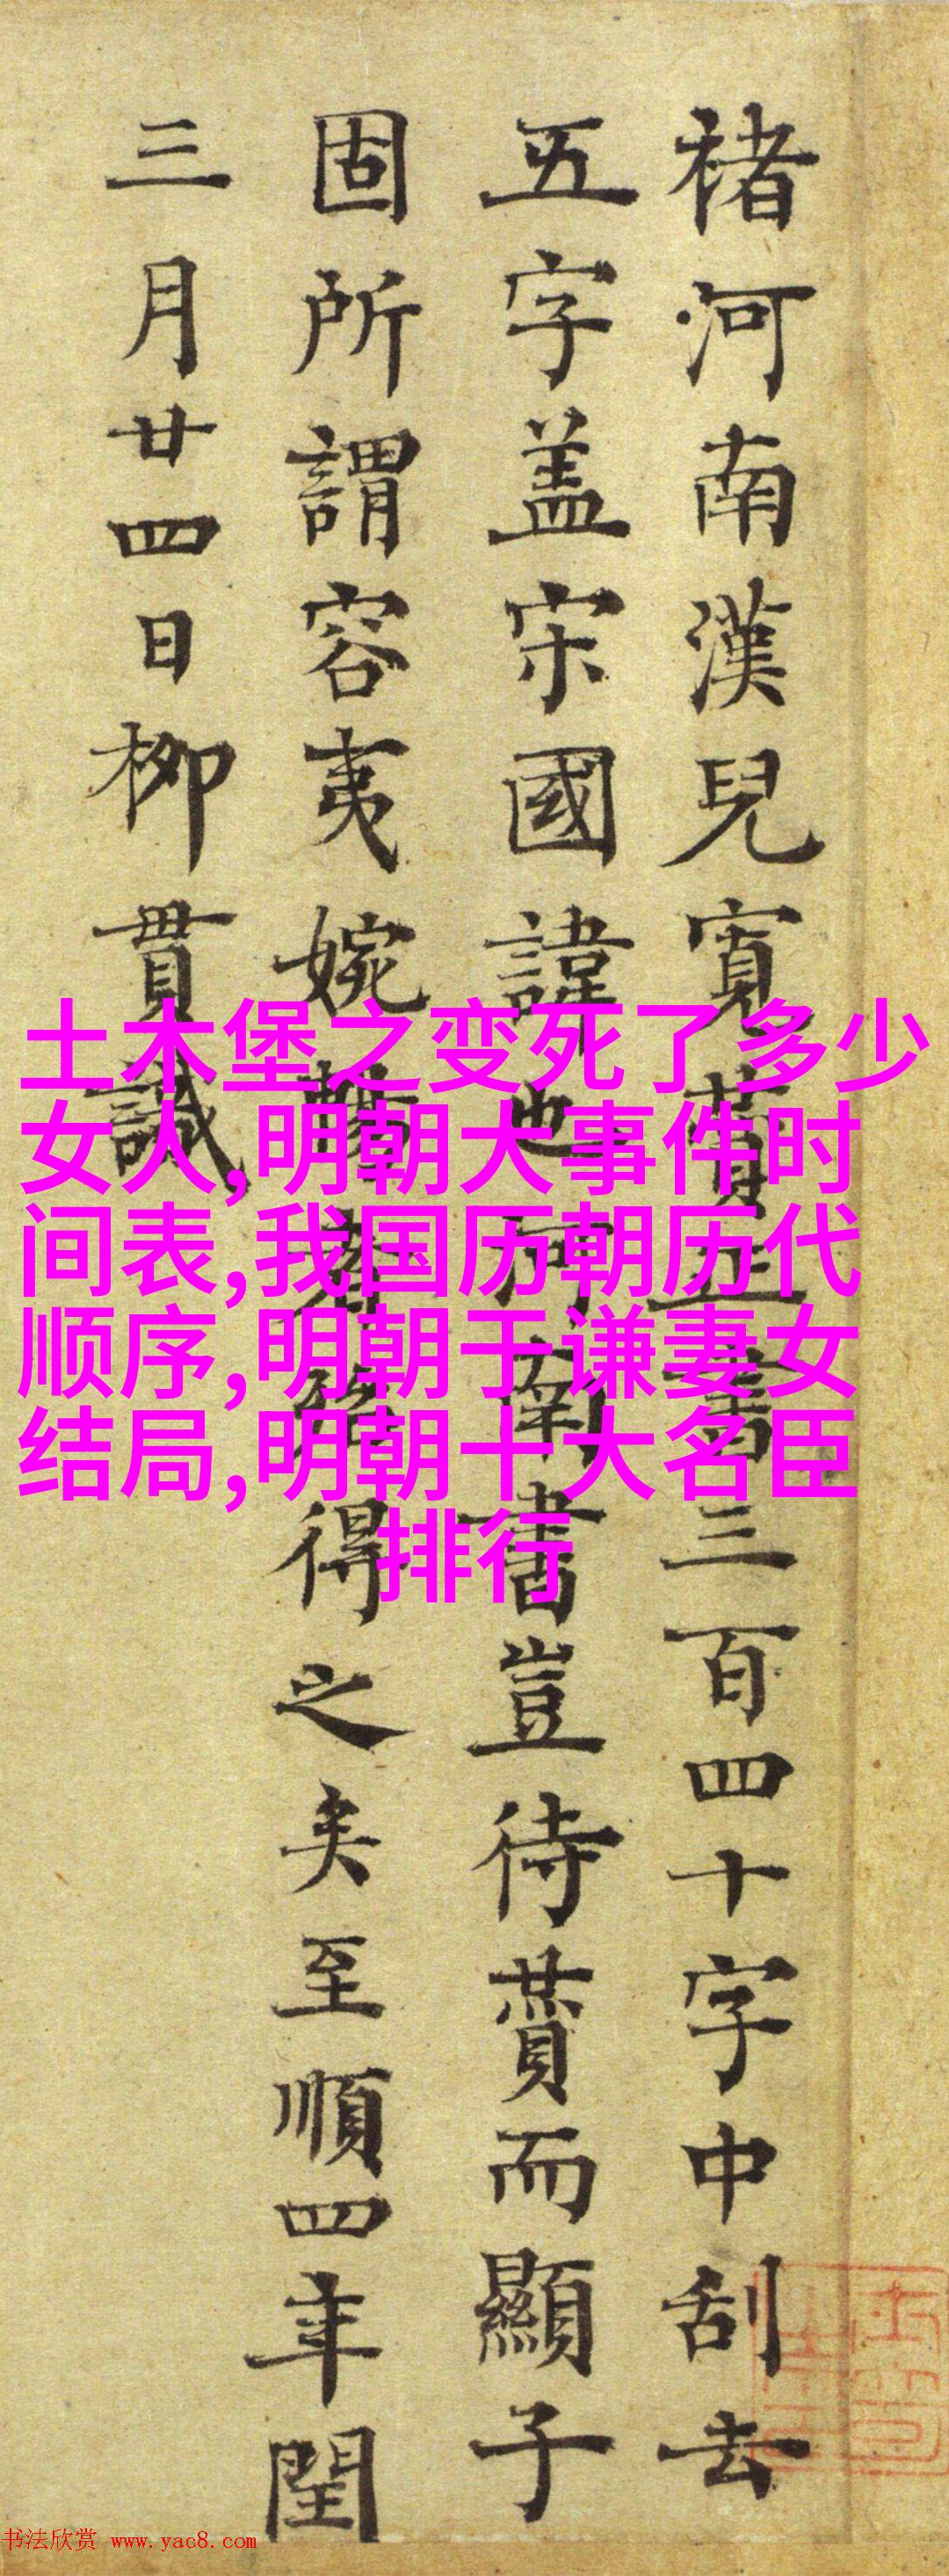 褚河南漢兒寬賛正書三百四十字中刮去
五字盖宋國諱也河南書豈待賛而顯子
固所謂容夷婉暢者得之矣至順四年閏
三月廿四日柳貫識
土木堡之变死了多少
女人,明朝大事件时
间表,我国历朝历代
顺序,明朝于谦妻女
结局,明朝十大名臣
排行
书法欣赏 www.yac8.com